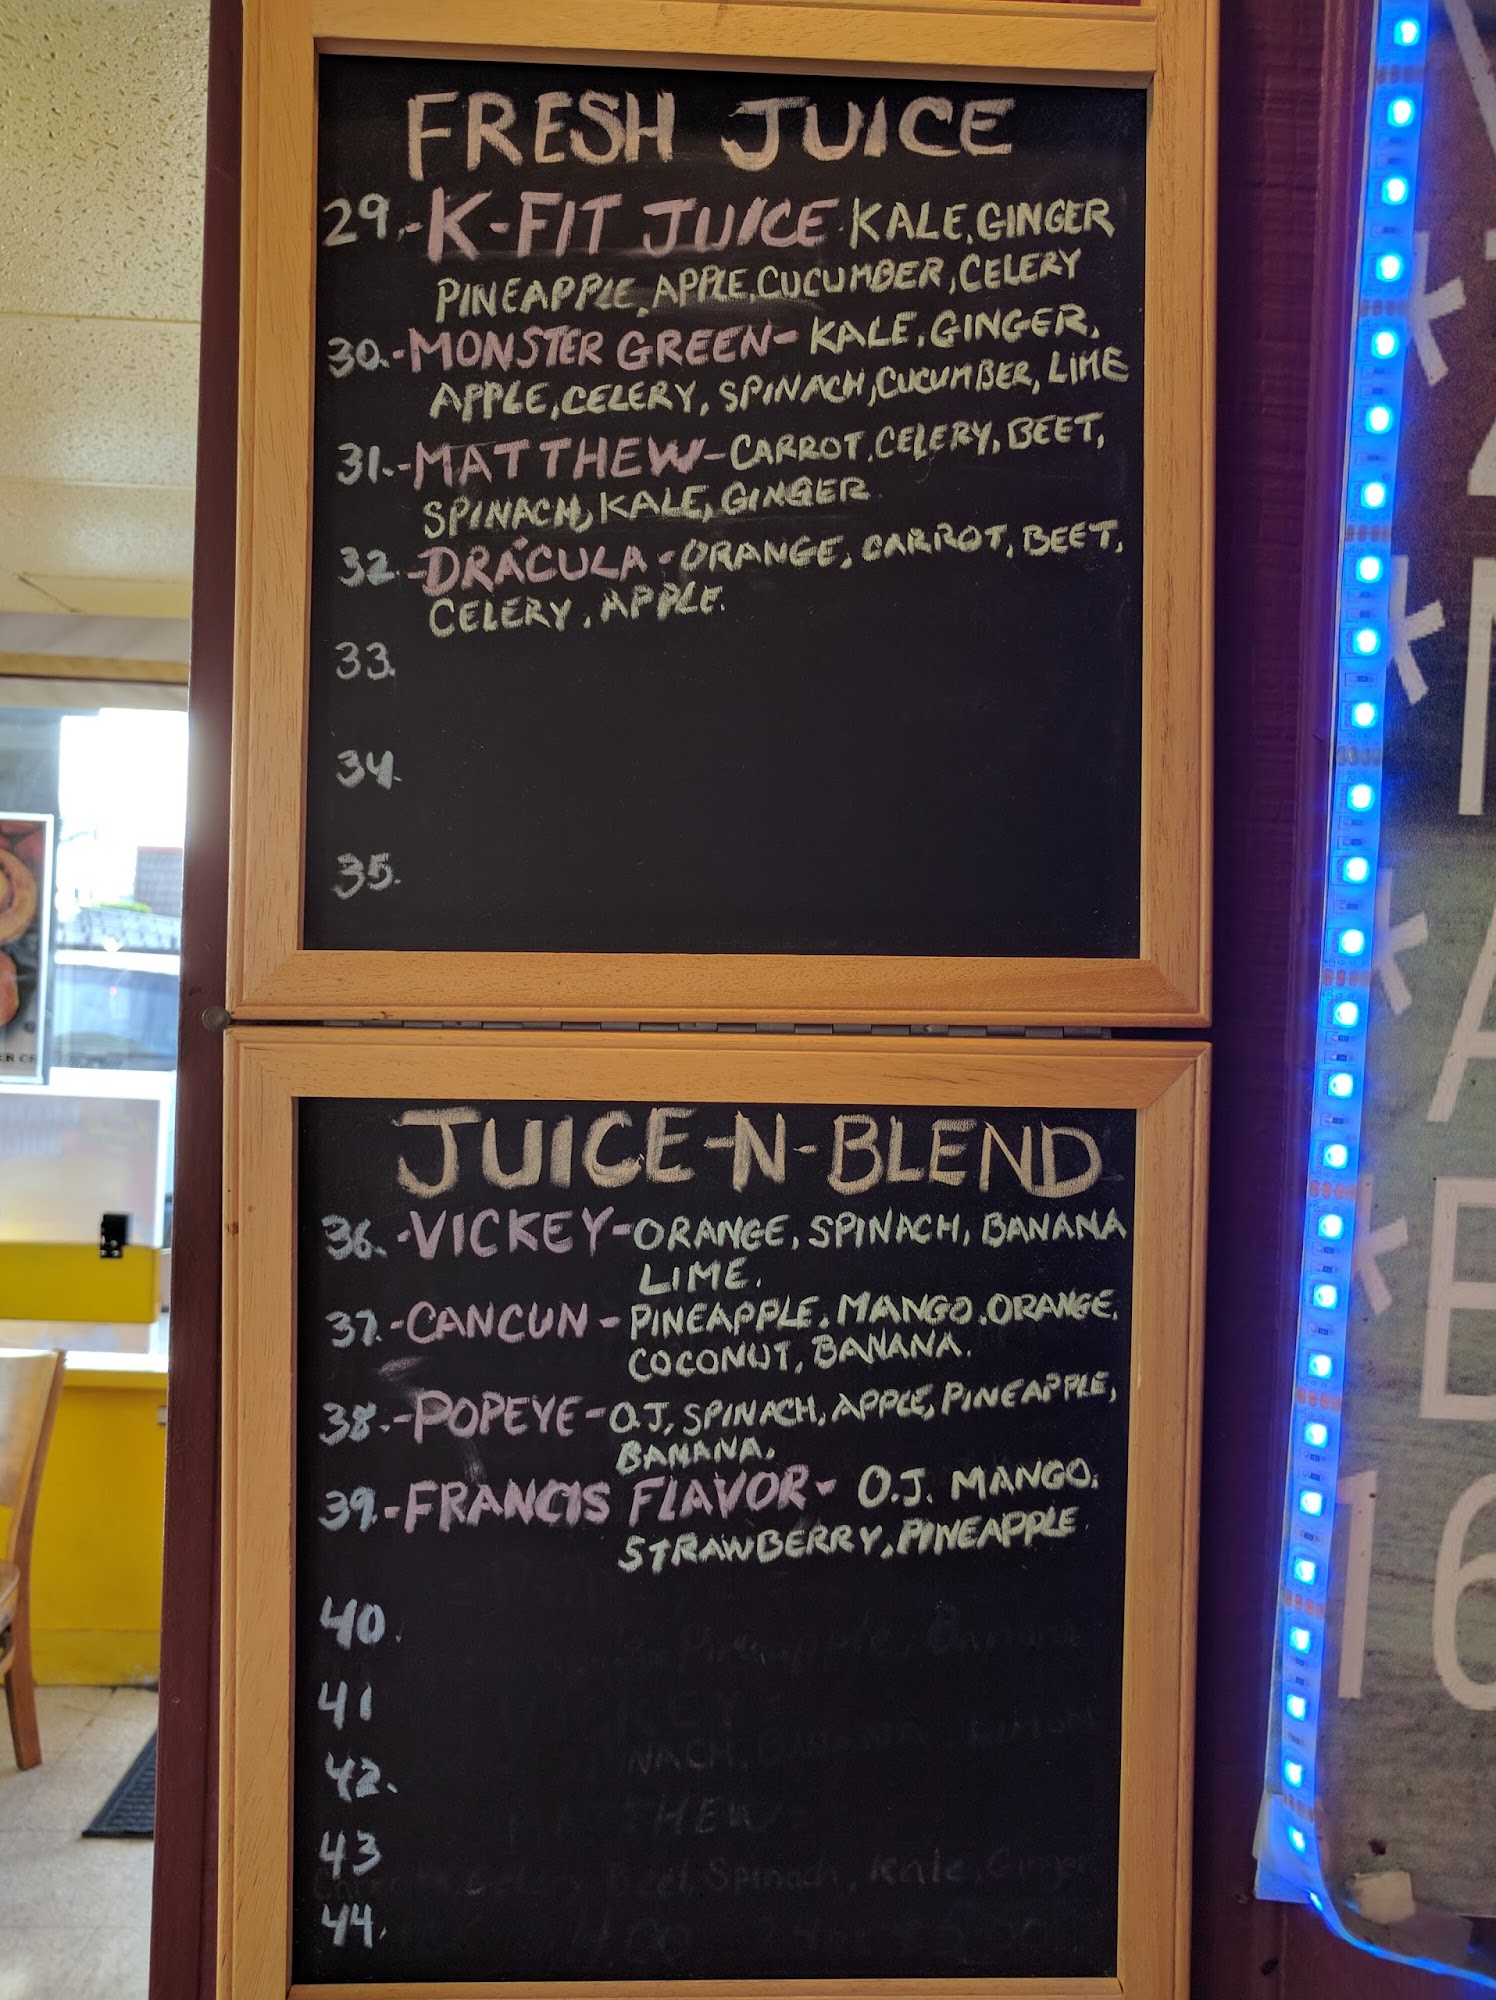 FRESH JUICE
29.-K-FIT JUICE KALE, GINGER
PINEAPPLE, APPLE, CUCUMBER, CELERY
30.-MONSTER GREEN- KALE, GINGER,
APPLE, CELERY, SPINACH, CUCUMBER, LIME
31.-MATTHEW-CARROT, CELERY, BEET,
SPINACH, KALE, GINGER
32.-DRACULA-ORANGE, CARROT, BEET,
CELERY, APPLE.
33.
34.
35.
JUICE-N-BLEND
36.-VICKEY-ORANGE, SPINACH, BANANA
LIME.
37.-CANCUN-PINEAPPLE, MANGO, ORANGE,
COCONUT, BANANA.
38.-POPEYE-O.J, SPINACH, APPLE, PINEAPPLE,
BANANA.
39.-FRANCIS FLAVOR- O.J. MANGO,
STRAWBERRY, PINEAPPLE
40.
Pineapple, Banana
41
KEY
NACH, BANANA
42.
THEW
43
Beet, Spinach, Kale, Ginger
44.
16